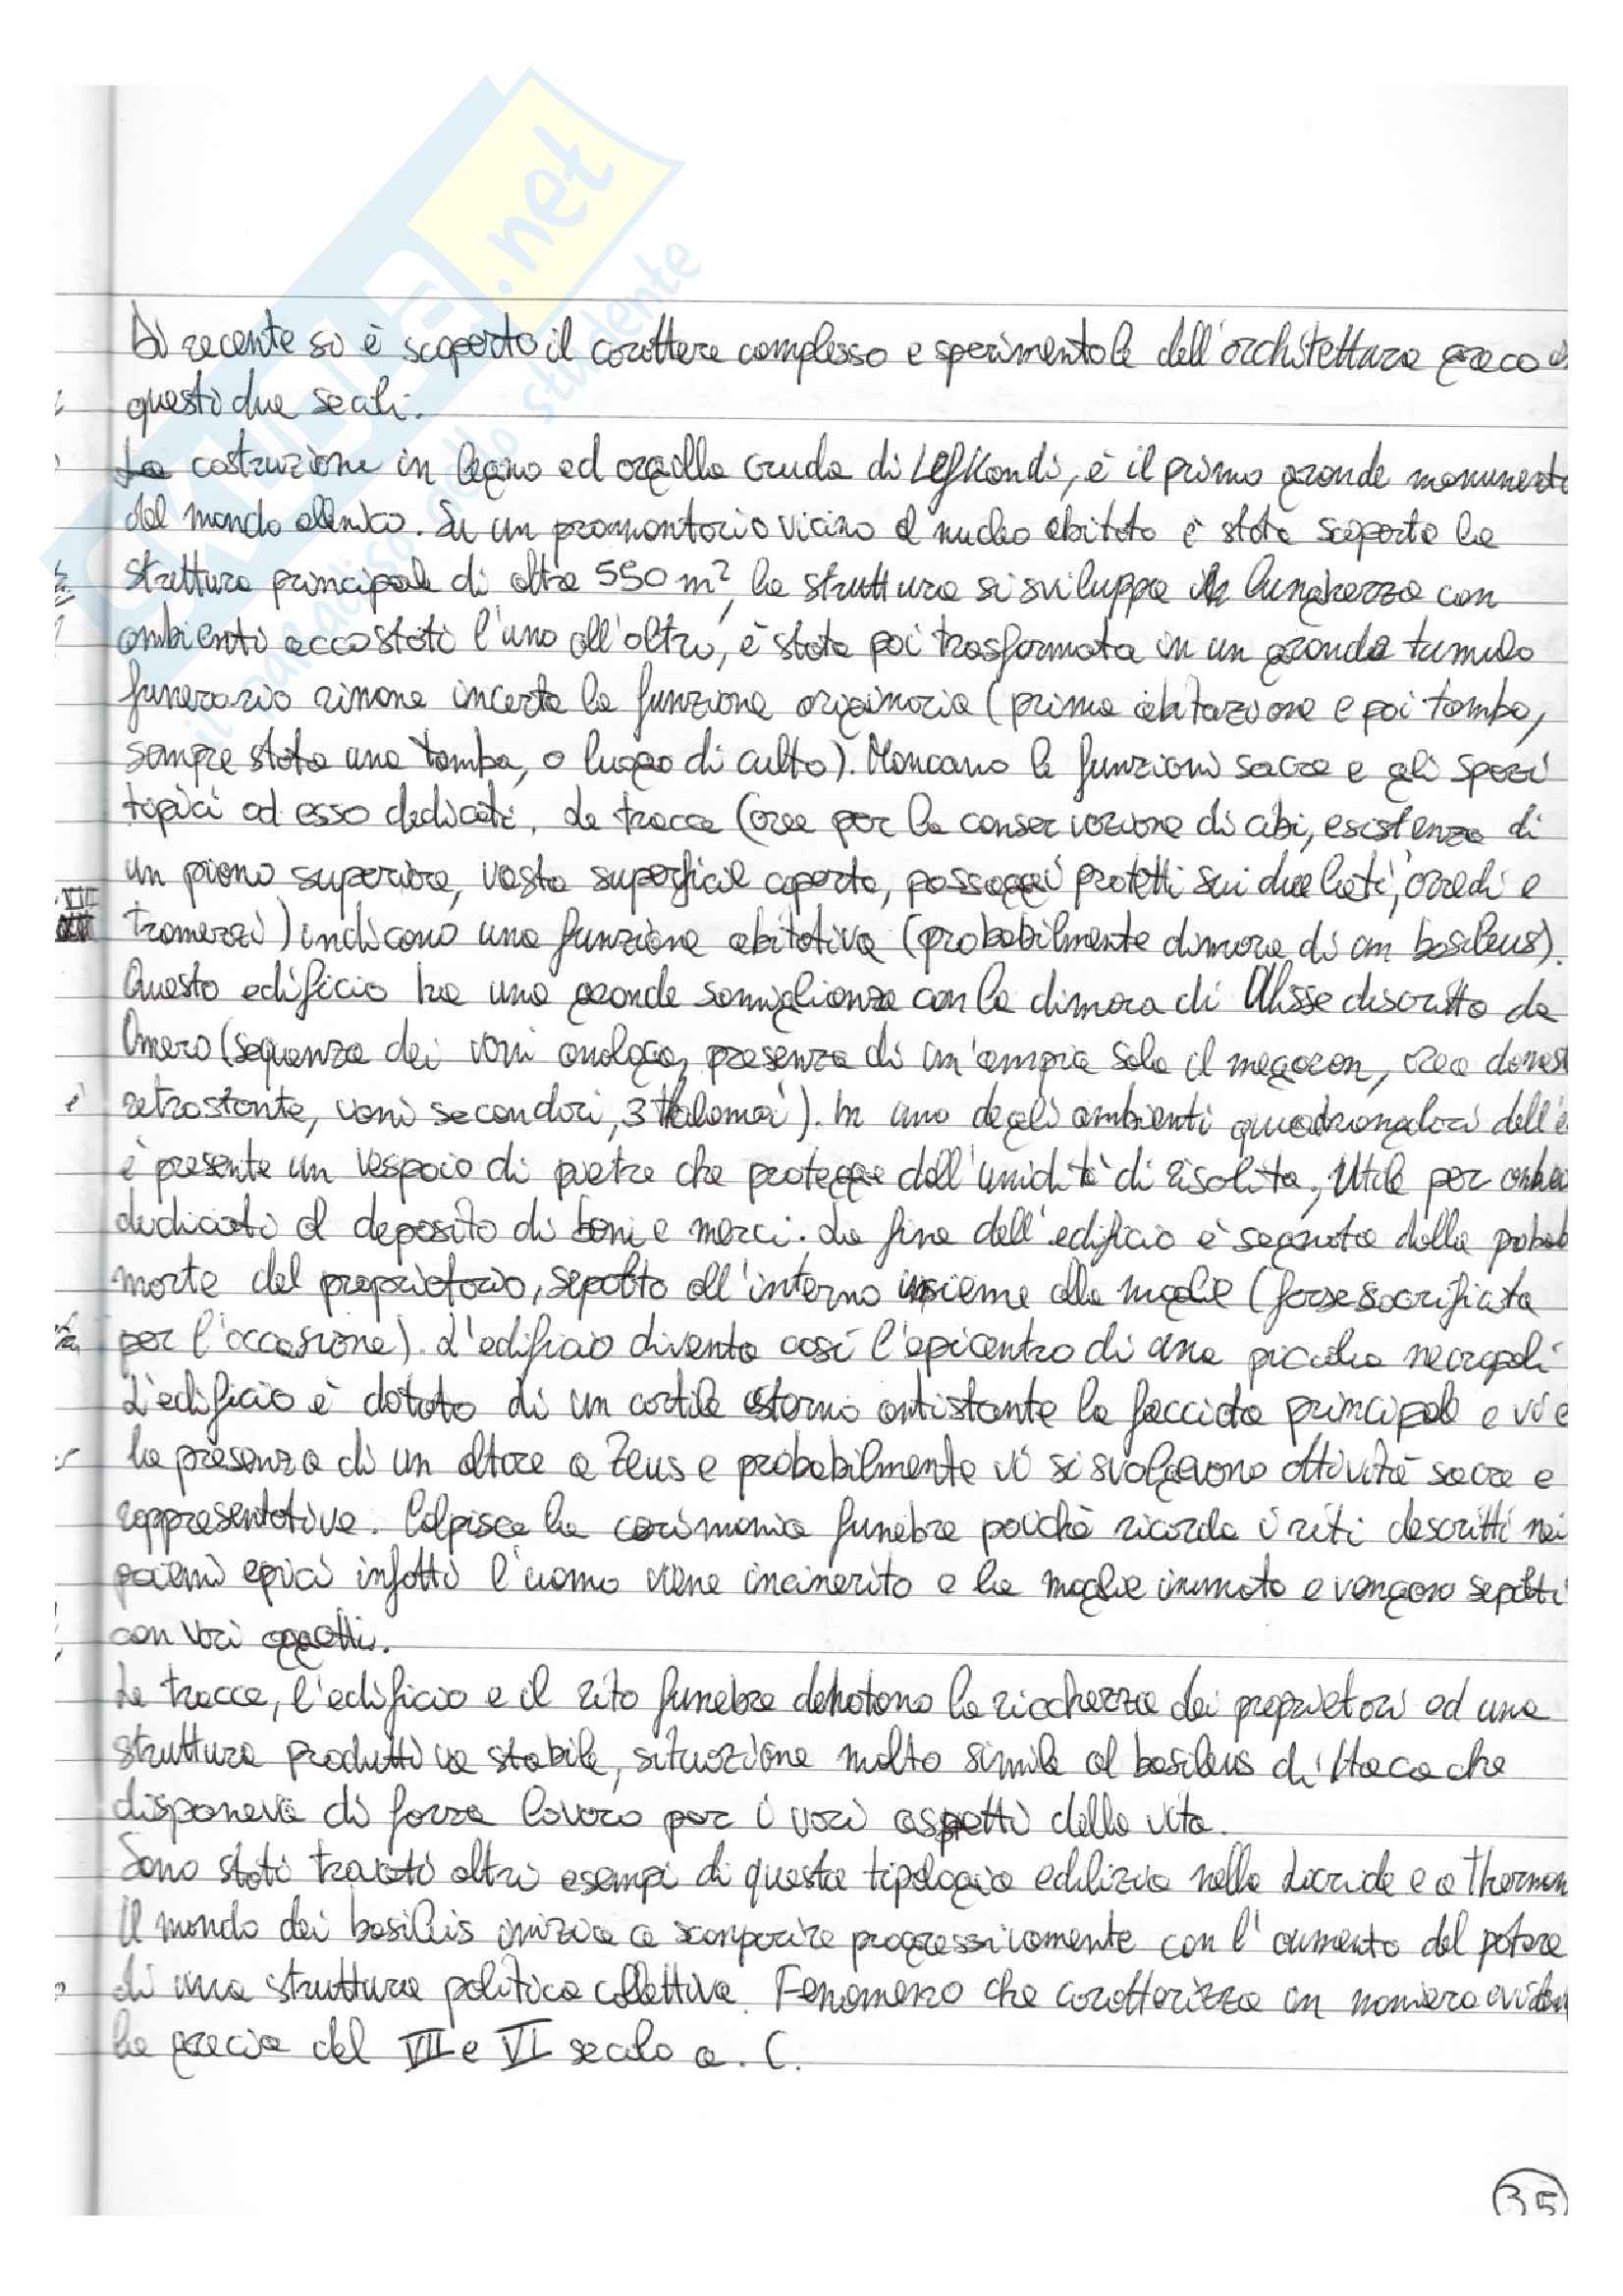 SKUOLA.net
il paradiso dello studente
Di recente si è scoperto il carattere complesso e sperimentale dell'architettura greca
questi due secoli.
La costruzione in legno ed argilla cruda di Lefkandi, è il primo grande monumento
del mondo ellenico. Su un promontorio vicino al nucleo abitato è stata scoperta la
struttura principale di oltre 550 m², la struttura si sviluppa in lunghezza con
ambienti accostati l'uno all'altro, è stata poi trasformata in un grande tumulo
funerario rimane incerta la funzione originaria (prima abitazione e poi tomba,
sempre stata una tomba, o luogo di culto). Mancano le funzioni sacre e gli spazi
tipici ad esso dedicati. Le tracce (aree per la conservazione di cibi, esistenza di
un piano superiore, vasta superficie coperta, passaggi protetti sui due lati, arredi e
VII
tramezzi) indicano una funzione abitativa (probabilmente dimora di un basileus).
Questo edificio ha una grande somiglianza con la dimora di Ulisse descritta da
Omero (sequenza dei vani analoga, presenza di un'ampia sala il megaron, area
retrostante, vani secondari, 3 thalamoi). In uno degli ambienti quadrangolari
è presente un vespaio di pietre che protegge dall'umidità di risalita, utile per
dedicati al deposito di beni e merci. La fine dell'edificio è segnata dalla probab
morte del proprietario, sepolto all'interno insieme alla moglie (forse sacrificata
per l'occasione). L'edificio diventa così l'epicentro di una piccola necropoli
L'edificio è dotato di un cortile esterno antistante la facciata principale e vi è
la presenza di un altare a Zeus e probabilmente vi si svolgevano attività sacre e
rappresentative. Colpisce la cerimonia funebre poichè ricorda i riti descritti nei
poemi epici infatti l'uomo viene incinerito e la moglie inumata e vengono sepolti
con vari oggetti.
Le tracce, l'edificio e il rito funebre denotano la ricchezza dei proprietari ed una
struttura produttiva stabile, situazione molto simile al basileus di Itaca che
disponeva di forza lavoro per i vari aspetti della vita.
Sono stati trovati altri esempi di questa tipologia edilizia nella Locride e a Thermon
Il mondo dei basileis inizia a scomparire progressivamente con l'aumento del potere
di una struttura politica collettiva. Fenomeno che caratterizza in maniera
la grecia del VII e VI secolo a. C.
35